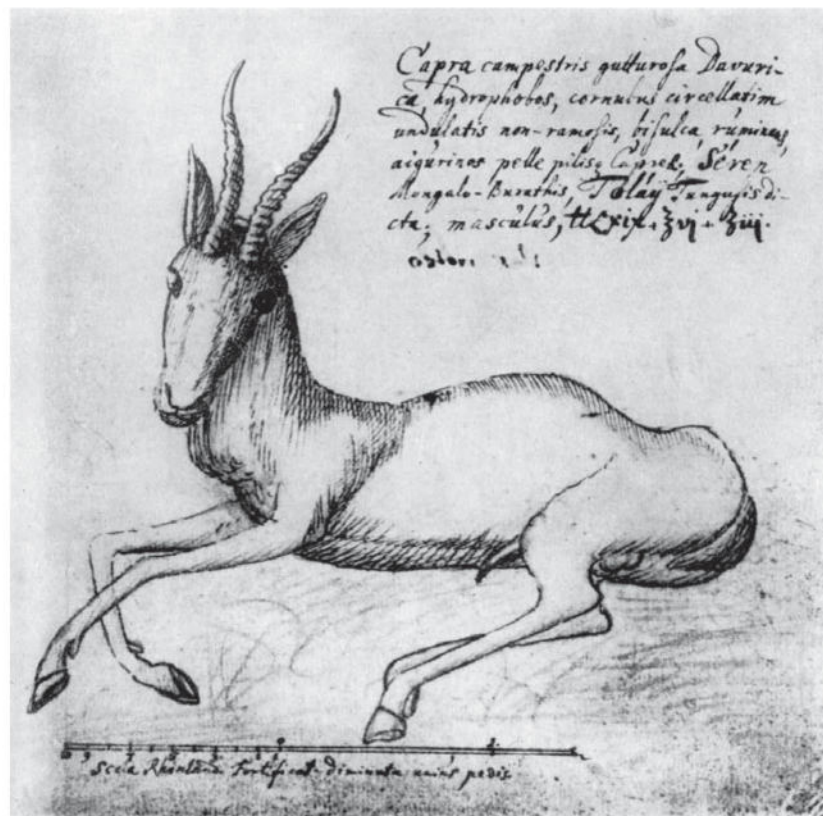 Capra campestris gutturosa Davuri-
ca, hydrophobos, cornubus circellatim
undulatis non-ramosis, bisulca, ruminans,
pelle pilisq Capreæ, Seren
Mongalo-Burathis, Tolaÿ Tungusis di-
cta, masculus,
Scala Rhenland. Fortificat. diminuta unius pedis.